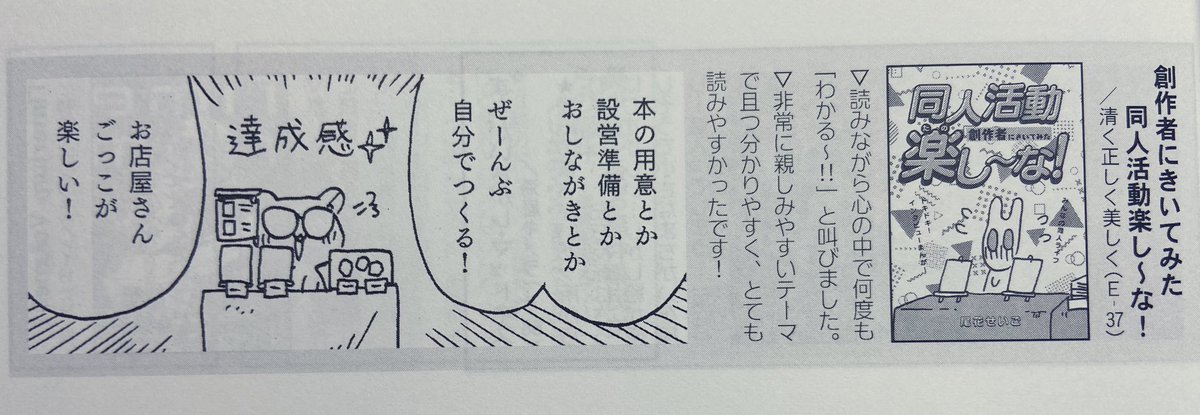 創作者にきいてみた
同人活動楽し〜な！
／清く正しく美しく（E-37）
同人活動
創作者にきいてみた
楽し〜な！
尾花せいご
▽読みながら心の中で何度も
「わかる〜!!」と叫びました。
▽非常に親しみやすいテーマ
で且つ分かりやすく、とても
読みやすかったです！
本の用意とか
設営準備とか
おしながきとか
ぜーんぶ
自分でつくる！
達成感
お店屋さん
ごっこが
楽しい！